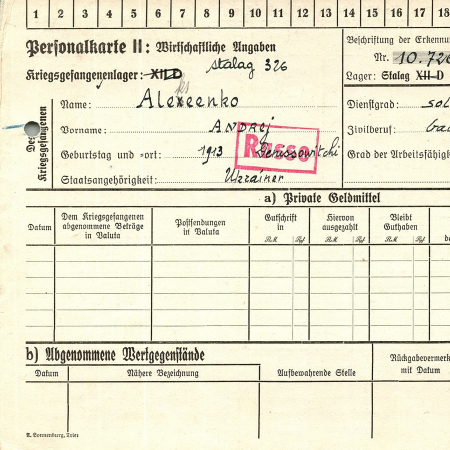 1 2 3 4 5 6 7 8 9 10 11 12 13 14 15 16 17 18
Personalkarte II: Wirtschaftliche Angaben
Beschriftung der Erkennu
Nr. 10.726
Kriegsgefangenenlager: XII D Stalag 326
Lager: Stalag XII D
Des Kriegsgefangenen
Name: Alexeenko
Dienstgrad: sol
Vorname: ANDREJ
Zivilberuf:
Geburtstag und =ort: 1913 Denissowitchi
Grad der Arbeitsfähigk
Russe
Staatsangehörigkeit: Ukrainer
a) Private Geldmittel
Datum
Dem Kriegsgefangenen abgenommene Beträge in Valuta
Postsendungen in Valuta
Gutschrift in
RM Pf
Hiervon ausgezahlt
RM Pf
Bleibt Guthaben
RM Pf
b) Abgenommene Wertgegenstände
Datum
Nähere Bezeichnung
Aufbewahrende Stelle
Rückgabevermerk mit Datum
A. Sonnenburg, Trier